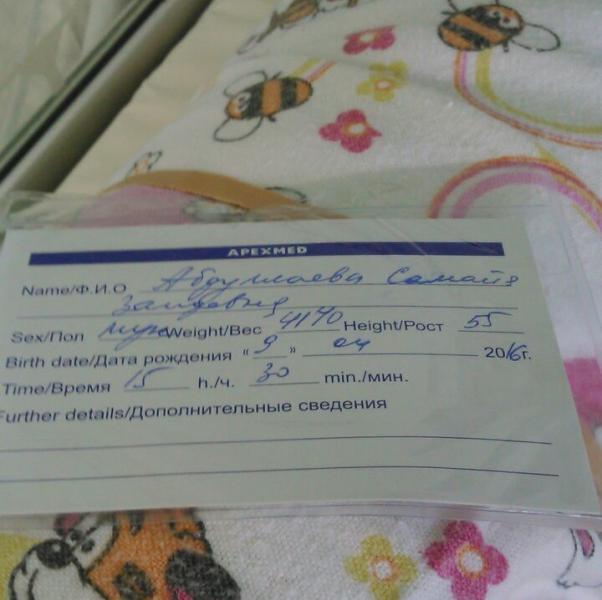 APEXMED
Name/Ф.И.О Абдуллаева Самайя
Заидовна
Sex/Пол муж Weight/Вес 4140 Height/Рост 55
Birth date/Дата рождения "9" 04 2016г.
Time/Время 15 h./ч. 30 min./мин.
Further details/Дополнительные сведения